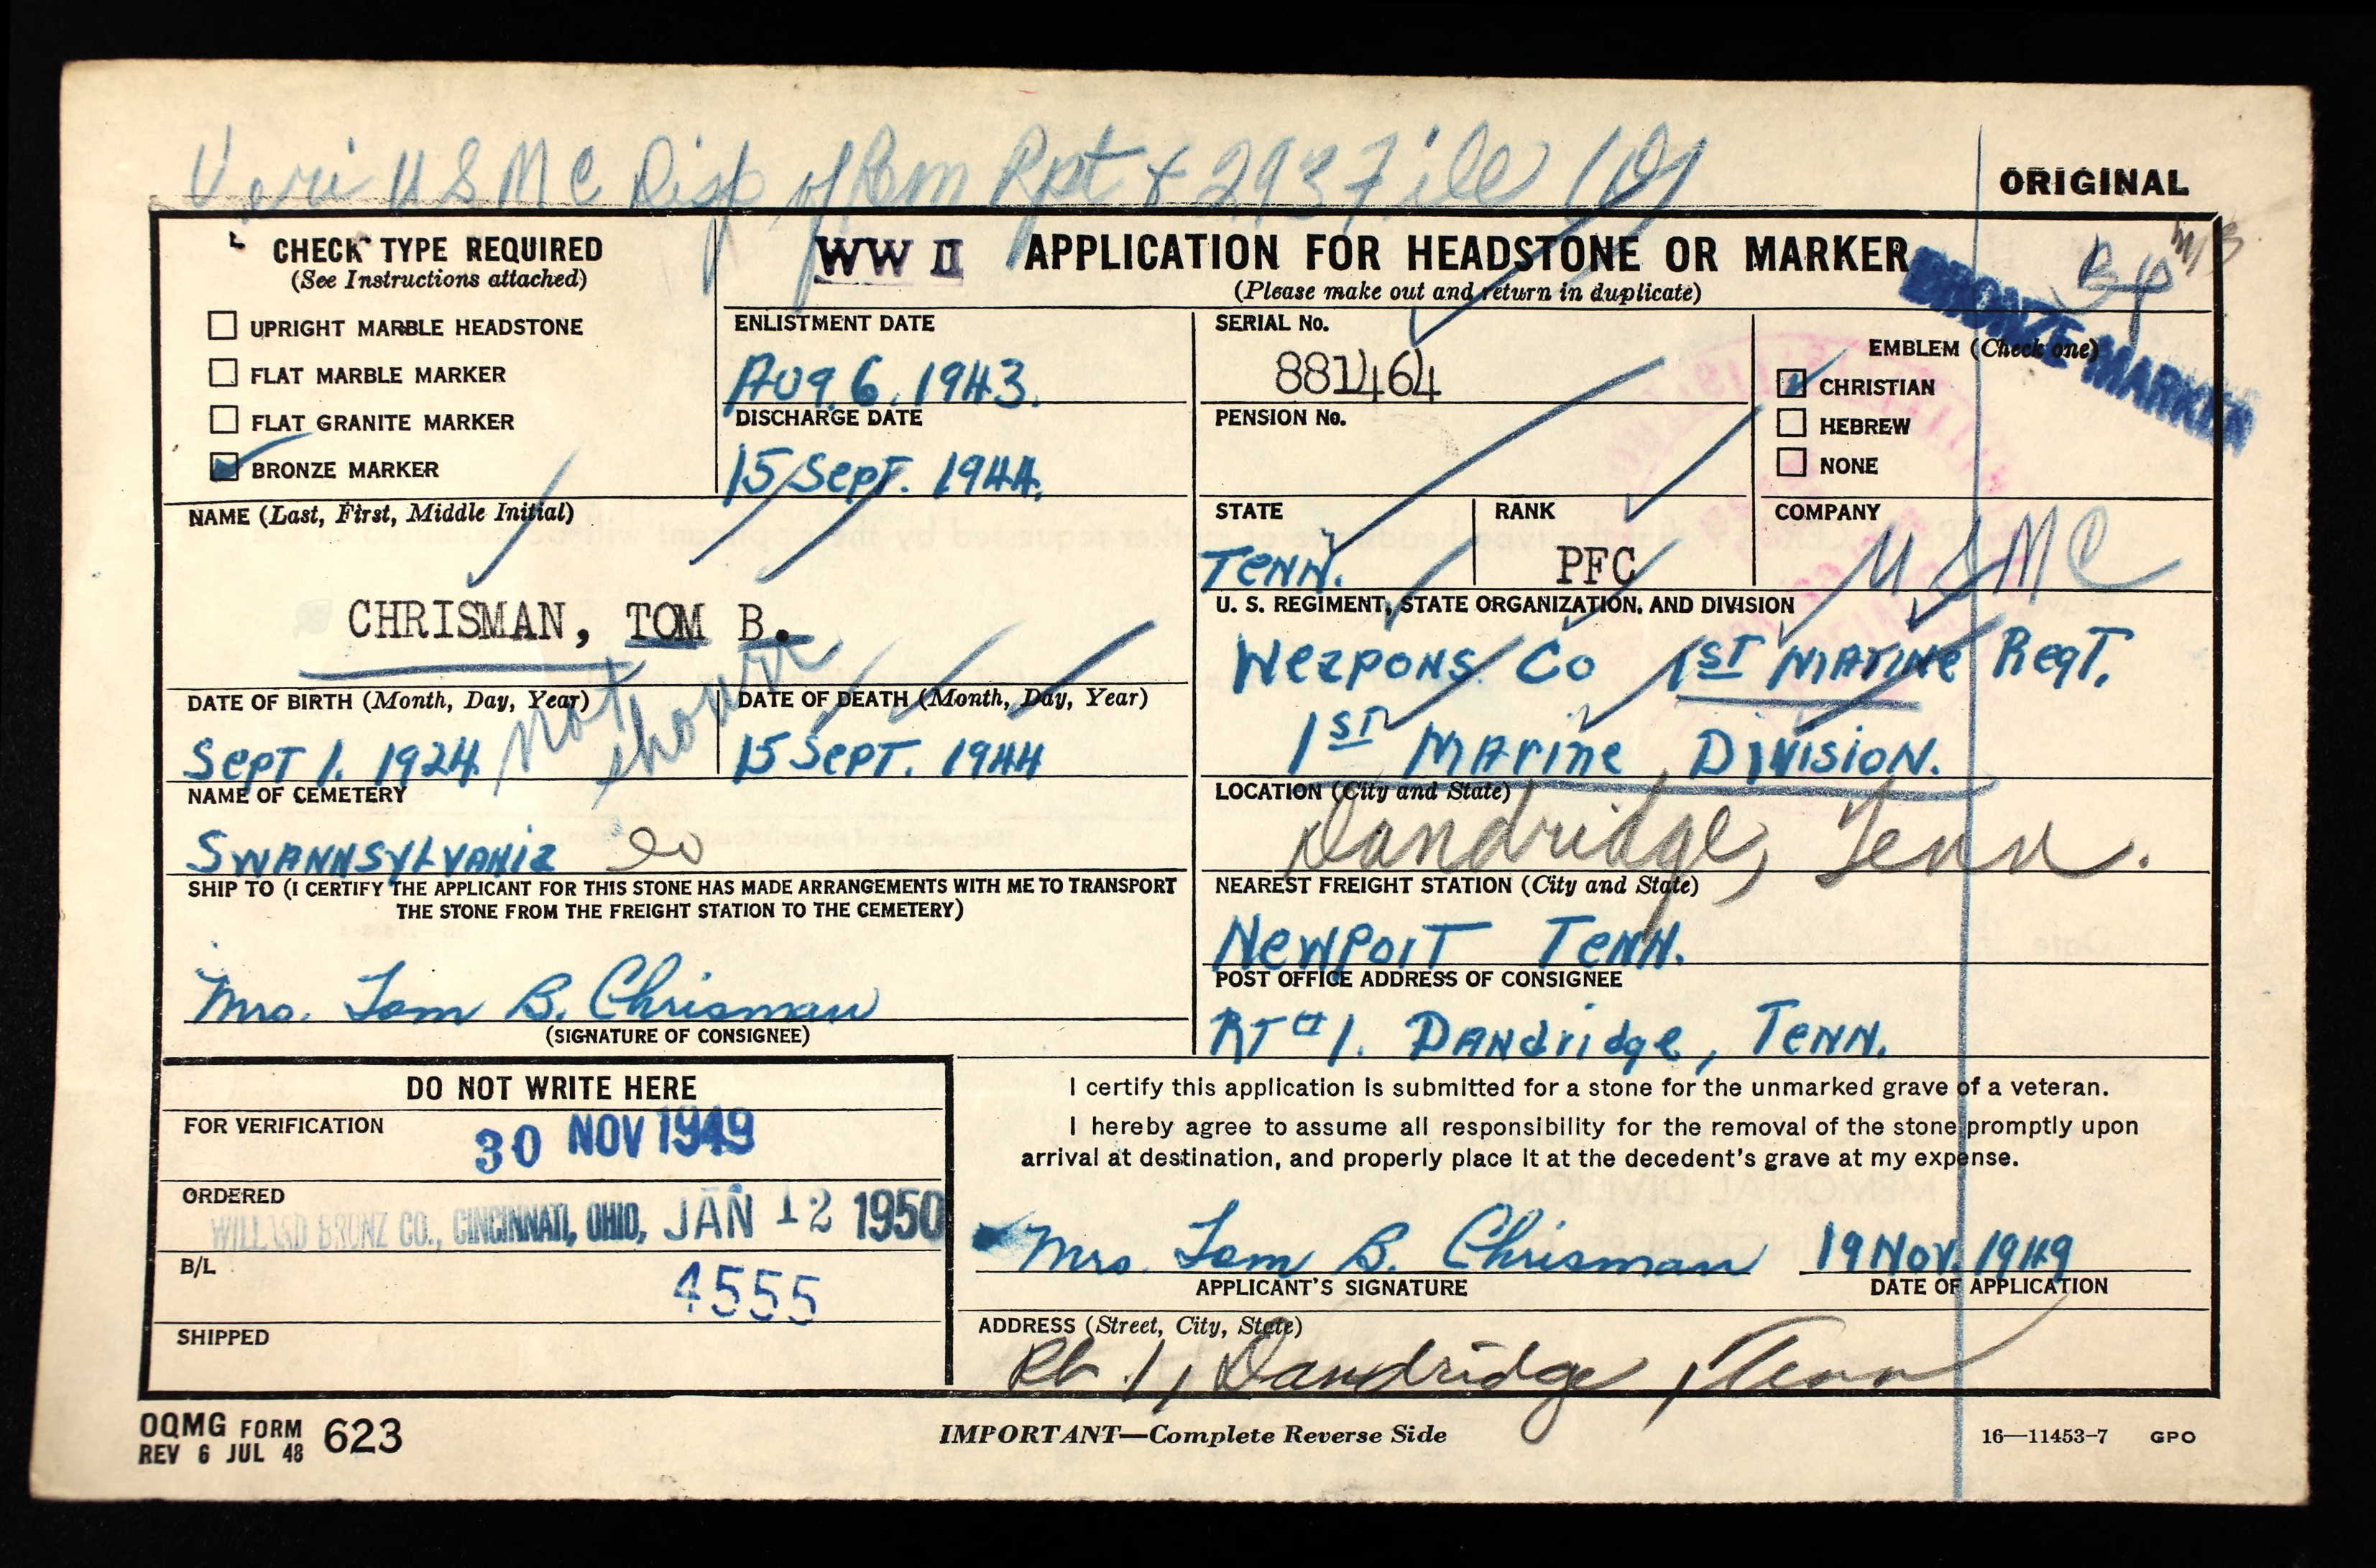 Veri USMC Disp of Rem Rpt & 293 File
ORIGINAL
CHECK TYPE REQUIRED
(See Instructions attached)
UPRIGHT MARBLE HEADSTONE
FLAT MARBLE MARKER
FLAT GRANITE MARKER
BRONZE MARKER
WW II APPLICATION FOR HEADSTONE OR MARKER
(Please make out and return in duplicate)
BRONZE MARKER
ENLISTMENT DATE
Aug. 6. 1943.
DISCHARGE DATE
15 Sept. 1944.
SERIAL No.
881464
PENSION No.
EMBLEM (Check one)
CHRISTIAN
HEBREW
NONE
NAME (Last, First, Middle Initial)
CHRISMAN, TOM B.
STATE
Tenn.
RANK
PFC
COMPANY
USMC
U. S. REGIMENT, STATE ORGANIZATION, AND DIVISION
Weapons Co 1ST Marine Regt.
1ST Marine Division.
DATE OF BIRTH (Month, Day, Year)
Sept 1. 1924
not shown
DATE OF DEATH (Month, Day, Year)
15 Sept. 1944
NAME OF CEMETERY
Swannsylvania
LOCATION (City and State)
Dandridge, Tenn.
SHIP TO (I CERTIFY THE APPLICANT FOR THIS STONE HAS MADE ARRANGEMENTS WITH ME TO TRANSPORT
THE STONE FROM THE FREIGHT STATION TO THE CEMETERY)
Mrs. Tom B. Chrisman
(SIGNATURE OF CONSIGNEE)
NEAREST FREIGHT STATION (City and State)
Newport Tenn.
POST OFFICE ADDRESS OF CONSIGNEE
RT #1. Dandridge, Tenn.
DO NOT WRITE HERE
FOR VERIFICATION
30 NOV 1949
ORDERED
WILLARD BRONZ CO., CINCINNATI, OHIO, JAN 12 1950
B/L
4555
SHIPPED
I certify this application is submitted for a stone for the unmarked grave of a veteran.
I hereby agree to assume all responsibility for the removal of the stone promptly upon
arrival at destination, and properly place it at the decedent's grave at my expense.
Mrs. Tom B. Chrisman 19 Nov. 1949
APPLICANT'S SIGNATURE DATE OF APPLICATION
ADDRESS (Street, City, State)
Rt 1, Dandridge, Tenn
OQMG FORM 623
REV 6 JUL 48
IMPORTANT—Complete Reverse Side
16—11453-7 GPO